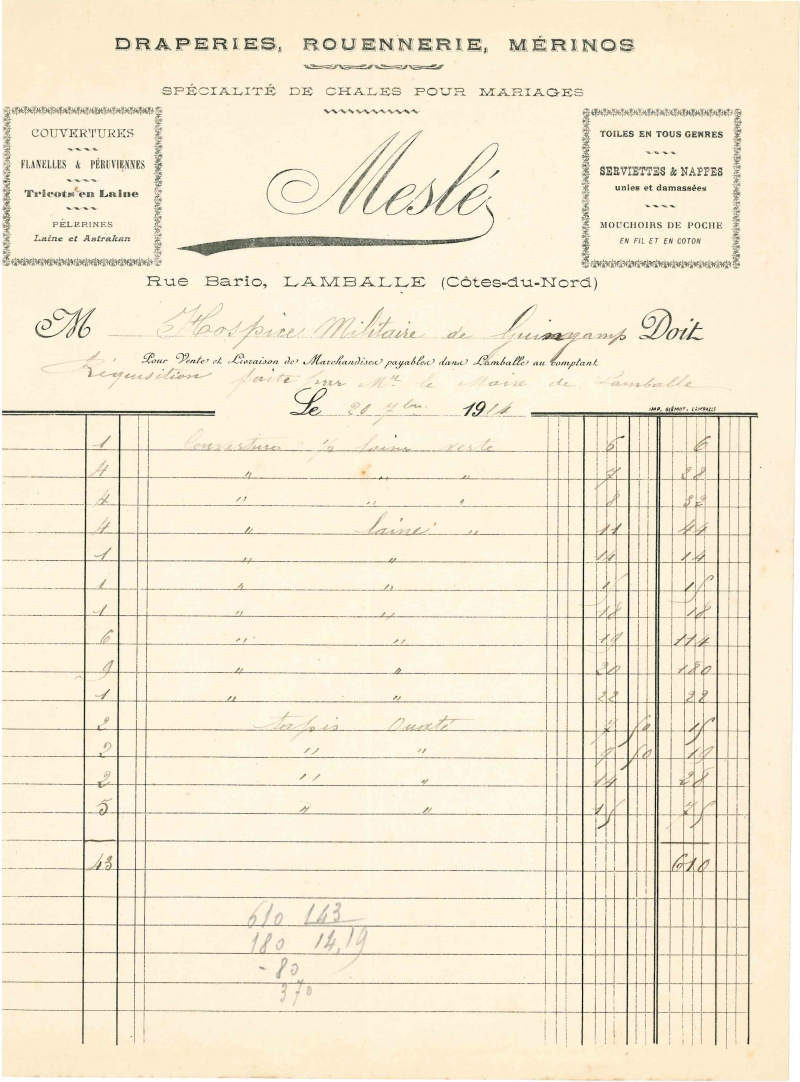 DRAPERIES, ROUENNERIE, MÉRINOS
SPÉCIALITÉ DE CHALES POUR MARIAGES
COUVERTURES
FLANELLES & PÉRUVIENNES
Tricots en Laine
PÉLERINES
Laine et Astrakan
Meslé
TOILES EN TOUS GENRES
SERVIETTES & NAPPES
unies et damassées
MOUCHOIRS DE POCHE
EN FIL ET EN COTON
Rue Bario, LAMBALLE (Côtes-du-Nord)
M Hospice Militaire de Guingamp Doit
Pour Vente et Livraison de Marchandises payables dans Lamballe au comptant
Réquisition faite par Mr le Maire de Lamballe
Le 20 7bre 1914
IMP. CLÉMOT, LAMBALLE
1 Couverture 1/2 laine verte 6 6
4 " " " 7 28
4 " " " 8 32
4 " laine " 11 44
1 " " 14 14
1 " " 15 15
1 " " 18 18
6 " " 19 114
9 " " 20 180
1 " " 22 22
2 tapis Ouaté 7 50 15
2 " " 9 50 19
2 " " 14 28
5 " " 15 75
43 610
610 43
180 14,19
80
370